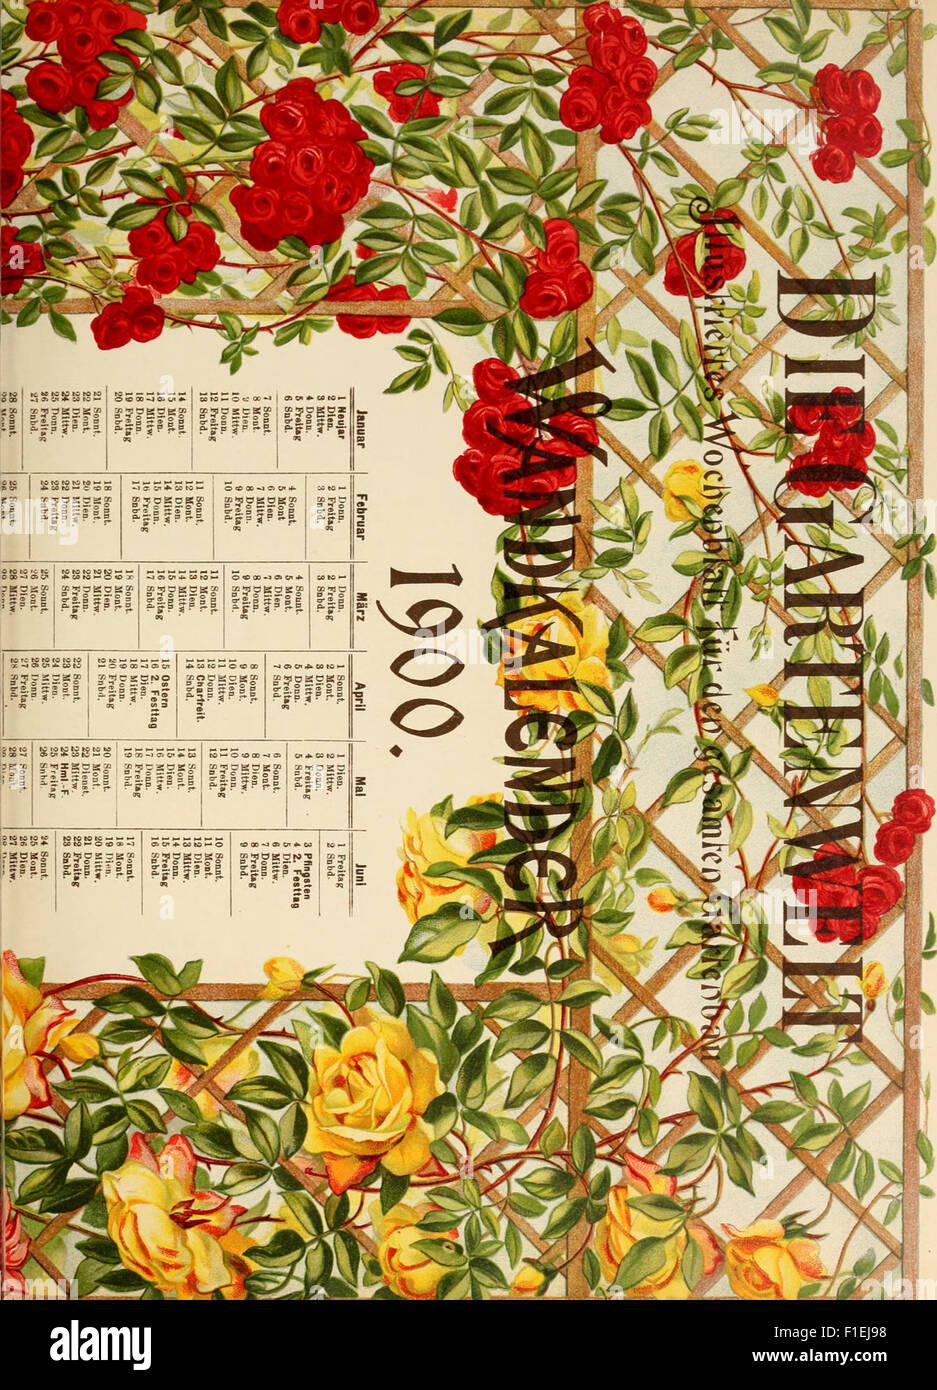 DIE GARTENWELT
Illustriertes Wochenblatt für den gesamten Gartenbau
WANDKALENDER
1900.
Januar
1 Neujar
2 Dien.
3 Mittw.
4 Donn.
5 Freitag
6 Snbd.
7 Sonnt.
8 Mont
9 Dien.
10 Mittw.
11 Donn.
12 Freitag
13 Snbd.
14 Sonnt.
15 Mont.
16 Dien.
17 Mittw.
18 Donn.
19 Freitag
20 Snbd.
21 Sonnt.
22 Mont.
23 Dien.
24 Mittw.
25 Donn.
26 Freitag
27 Snbd.
28 Sonnt.
Februar
1 Donn.
2 Freitag
3 Snbd.
4 Sonnt.
5 Mont
6 Dien.
7 Mittw.
8 Donn.
9 Freitag
10 Snbd.
11 Sonnt.
12 Mont.
13 Dien.
14 Mittw.
15 Donn.
16 Freitag
17 Snbd.
18 Sonnt.
19 Mont.
20 Dien.
21 Mittw.
22 Donn.
23 Freitag
24 Snbd.
25 Sonnt.
März
1 Donn.
2 Freitag
3 Snbd.
4 Sonnt.
5 Mont.
6 Dien.
7 Mittw.
8 Donn.
9 Freitag
10 Snbd.
11 Sonnt.
12 Mont.
13 Dien.
14 Mittw.
15 Donn.
16 Freitag
17 Snbd.
18 Sonnt.
19 Mont.
20 Dien.
21 Mittw.
22 Donn.
23 Freitag
24 Snbd.
25 Sonnt.
26 Mont.
27 Dien.
28 Mittw.
April
1 Sonnt.
2 Mont.
3 Dien.
4 Mittw.
5 Donn.
6 Freitag
7 Snbd.
8 Sonnt.
9 Mont.
10 Dien.
11 Mittw.
12 Donn.
13 Charfreit.
14 Snbd.
15 Ostern
16 2. Festtag
17 Dien.
18 Mittw.
19 Donn.
20 Freitag
21 Snbd.
22 Sonnt.
23 Mont.
24 Dien.
25 Mittw.
26 Donn.
27 Freitag
28 Snbd.
Mai
1 Dien.
2 Mittw.
3 Donn.
4 Freitag
5 Snbd.
6 Sonnt.
7 Mont.
8 Dien.
9 Mittw.
10 Donn.
11 Freitag
12 Snbd.
13 Sonnt.
14 Mont.
15 Dien.
16 Mittw.
17 Donn.
18 Freitag
19 Snbd.
20 Sonnt.
21 Mont.
22 Dienst.
23 Mittw.
24 Hml.-F.
25 Freitag
26 Snbd.
27 Sonnt.
28 Mont.
Juni
1 Freitag
2 Snbd.
3 Pfingsten
4 2. Festtag
5 Dien.
6 Mittw.
7 Donn.
8 Freitag
9 Snbd.
10 Sonnt.
11 Mont.
12 Dien.
13 Mittw.
14 Donn.
15 Freitag
16 Snbd.
17 Sonnt.
18 Mont
19 Dien.
20 Mittw.
21 Donn.
22 Freitag
23 Snbd.
24 Sonnt.
25 Mont.
26 Dien.
27 Mittw.
alamy stock photo
F1EJ98
www.alamy.com